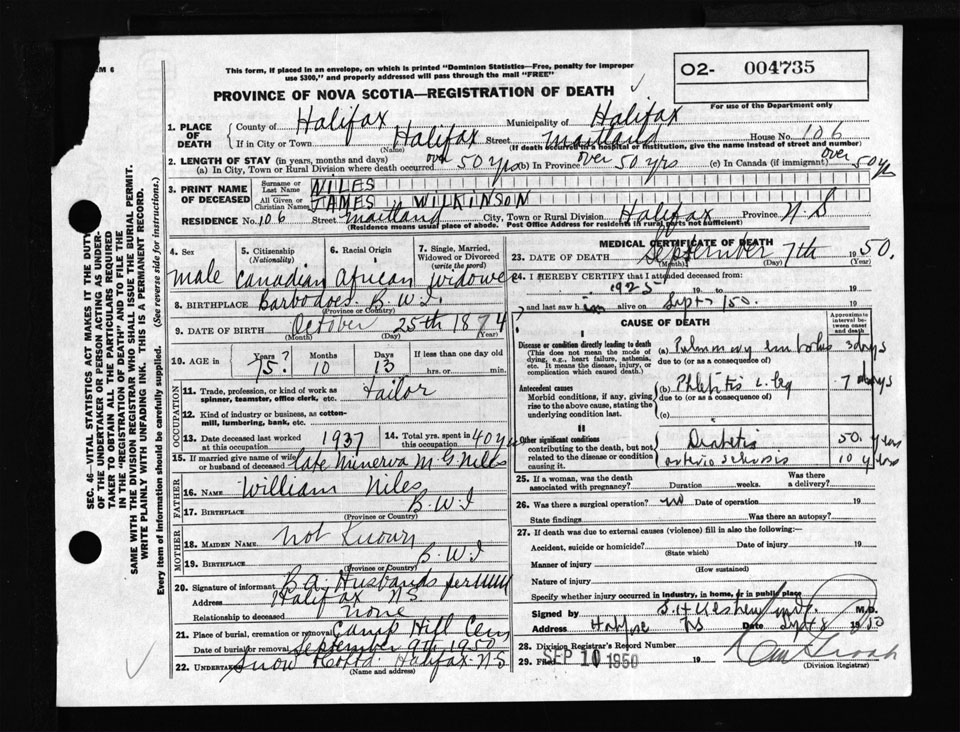 RM 6
This form, if placed in an envelope, on which is printed "Dominion Statistics—Free, penalty for improper
use $300," and properly addressed will pass through the mail "FREE"
O2- 004735
For use of the Department only
PROVINCE OF NOVA SCOTIA—REGISTRATION OF DEATH
1. PLACE OF DEATH
County of Halifax Municipality of Halifax
If in City or Town Halifax Street Maitland House No. 106
(Name) (If death occurred in a hospital or institution, give the name instead of street and number)
2. LENGTH OF STAY (in years, months and days)
(a) In City, Town or Rural Division where death occurred over 50 yrs (b) In Province over 50 yrs (c) In Canada (if immigrant) over 50 yrs
3. PRINT NAME OF DECEASED
Surname or Last Name NILES
All Given or Christian Names JAMES WILKINSON
RESIDENCE No. 106 Street Maitland City, Town or Rural Division Halifax Province N.S
(Residence means usual place of abode. Post Office Address for residents in rural parts not sufficient)
4. Sex
male
5. Citizenship
(Nationality)
Canadian
6. Racial Origin
African
7. Single, Married, Widowed or Divorced
(write the word)
widower
8. BIRTHPLACE Barbodoes. B.W.I.
(Province or Country)
9. DATE OF BIRTH October 25th 1874
(Month) (Day) (Year)
10. AGE in Years 75? Months 10 Days 13 If less than one day old
hrs. or min.
OCCUPATION
11. Trade, profession, or kind of work as
spinner, teamster, office clerk, etc. Tailor
12. Kind of industry or business, as cotton-
mill, lumbering, bank, etc.
13. Date deceased last worked
at this occupation 1937
14. Total yrs. spent in
this occupation 40 yrs
15. If married give name of wife
or husband of deceased late Minerva M. G. Niles
FATHER
16. NAME William Niles
17. BIRTHPLACE B.W.I
(Province or Country)
MOTHER
18. MAIDEN NAME not Known
19. BIRTHPLACE B.W.I
(Province or Country)
20. Signature of informant B.A. Husbands per
Address Halifax NS
Relationship to deceased none
21. Place of burial, cremation or removal Camp Hill Cem
Date of burial or removal September 9th 1950
22. UNDERTAKER Snow Halifax NS
(Name and address)
MEDICAL CERTIFICATE OF DEATH
23. DATE OF DEATH September 7th 1950.
(Month) (Day) (Year)
24. I HEREBY CERTIFY that I attended deceased from:
1925 19 to 19
and last saw him alive on Sept 7 50. 19
CAUSE OF DEATH
Approximate interval between onset and death
I
Disease or condition directly leading to death
(This does not mean the mode of dying, e.g., heart failure, asthenia, etc. It means the disease, injury, or complication which caused death.)
(a) Pulmonary embolus 3 days
due to (or as a consequence of)
Antecedent causes
Morbid conditions, if any, giving rise to the above cause, stating the underlying condition last.
(b) Phlebitis L. leg 7 days
due to (or as a consequence of)
(c)
II
Other significant conditions
contributing to the death, but not related to the disease or condition causing it.
Diabetis 50 years
arterio sclerosis 10 years
25. If a woman, was the death
associated with pregnancy? Duration weeks. Was there a delivery?
26. Was there a surgical operation? no Date of operation 19
State findings Was there an autopsy?
27. If death was due to external causes (violence) fill in also the following:—
Accident, suicide or homicide? Date of injury 19
(State which)
Manner of injury
(How sustained)
Nature of injury
Specify whether injury occurred in industry, in home, or in public place
Signed by M.D.
Address NS Date Sept 8 1950
28. Division Registrar's Record Number
29. Filed SEP 10 1950 19
(Division Registrar)
SEC. 46—VITAL STATISTICS ACT MAKES IT THE DUTY
OF THE UNDERTAKER OR PERSON ACTING AS UNDER-
TAKER TO OBTAIN ALL THE PARTICULARS REQUIRED
IN THE "REGISTRATION OF DEATH" AND TO FILE THE
SAME WITH THE DIVISION REGISTRAR WHO SHALL ISSUE THE BURIAL PERMIT.
WRITE PLAINLY WITH UNFADING INK. THIS IS A PERMANENT RECORD.
Every item of information should be carefully supplied. (See reverse side for instructions.)